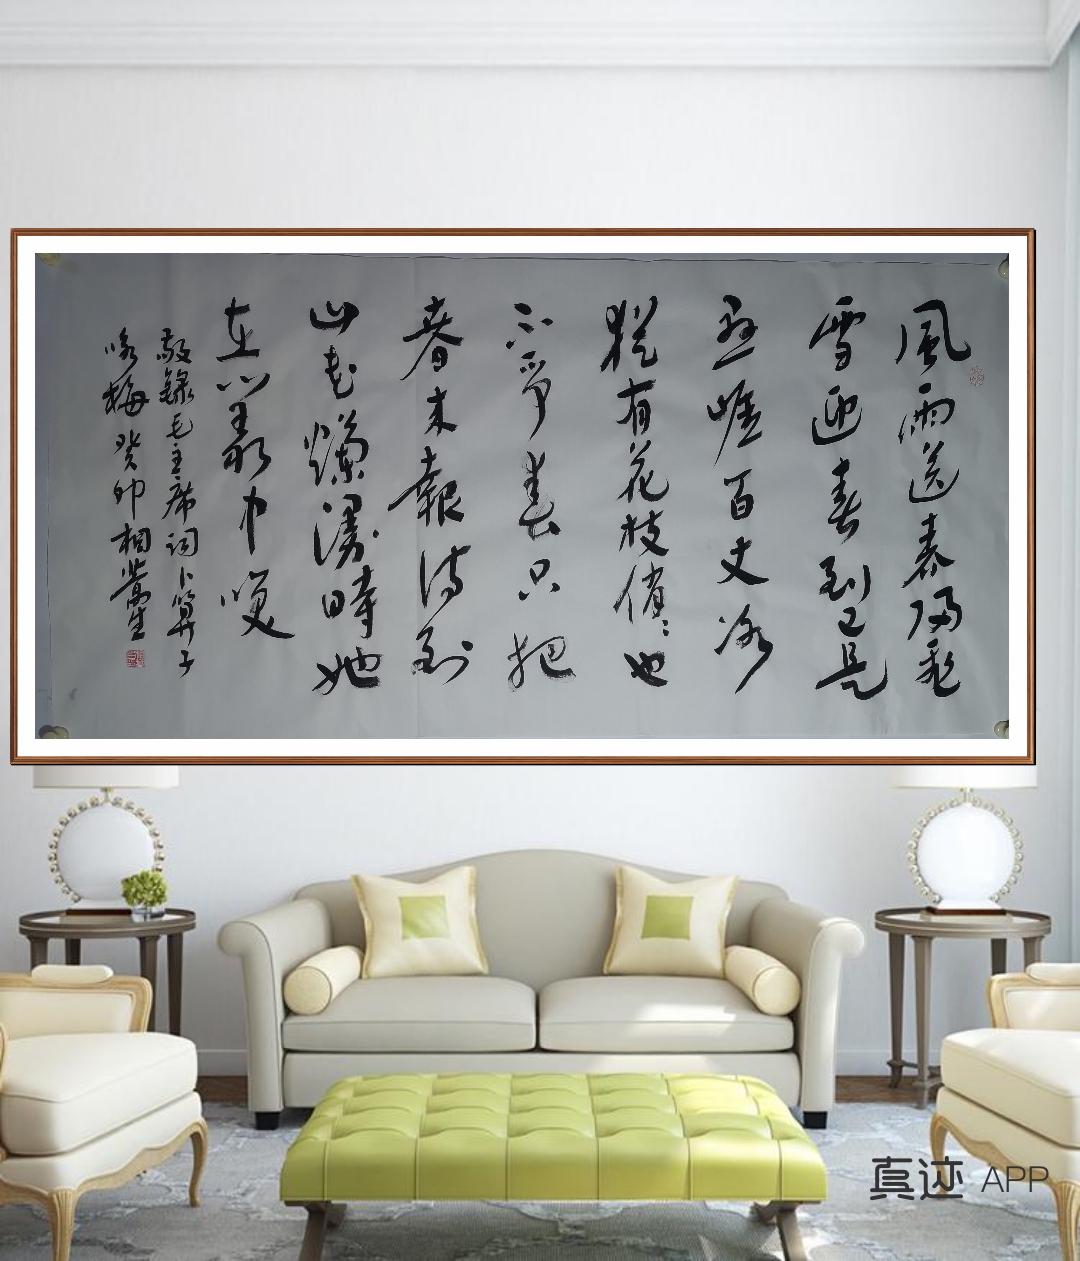 風雨送春歸飛
雪迎春到已是
懸崖百丈冰
猶有花枝俏〻也
不爭春只把
春來報待到
山花爛漫時她
在叢中笑
敬錄毛主席詞卜算子
咏梅 癸卯 相
真迹 APP